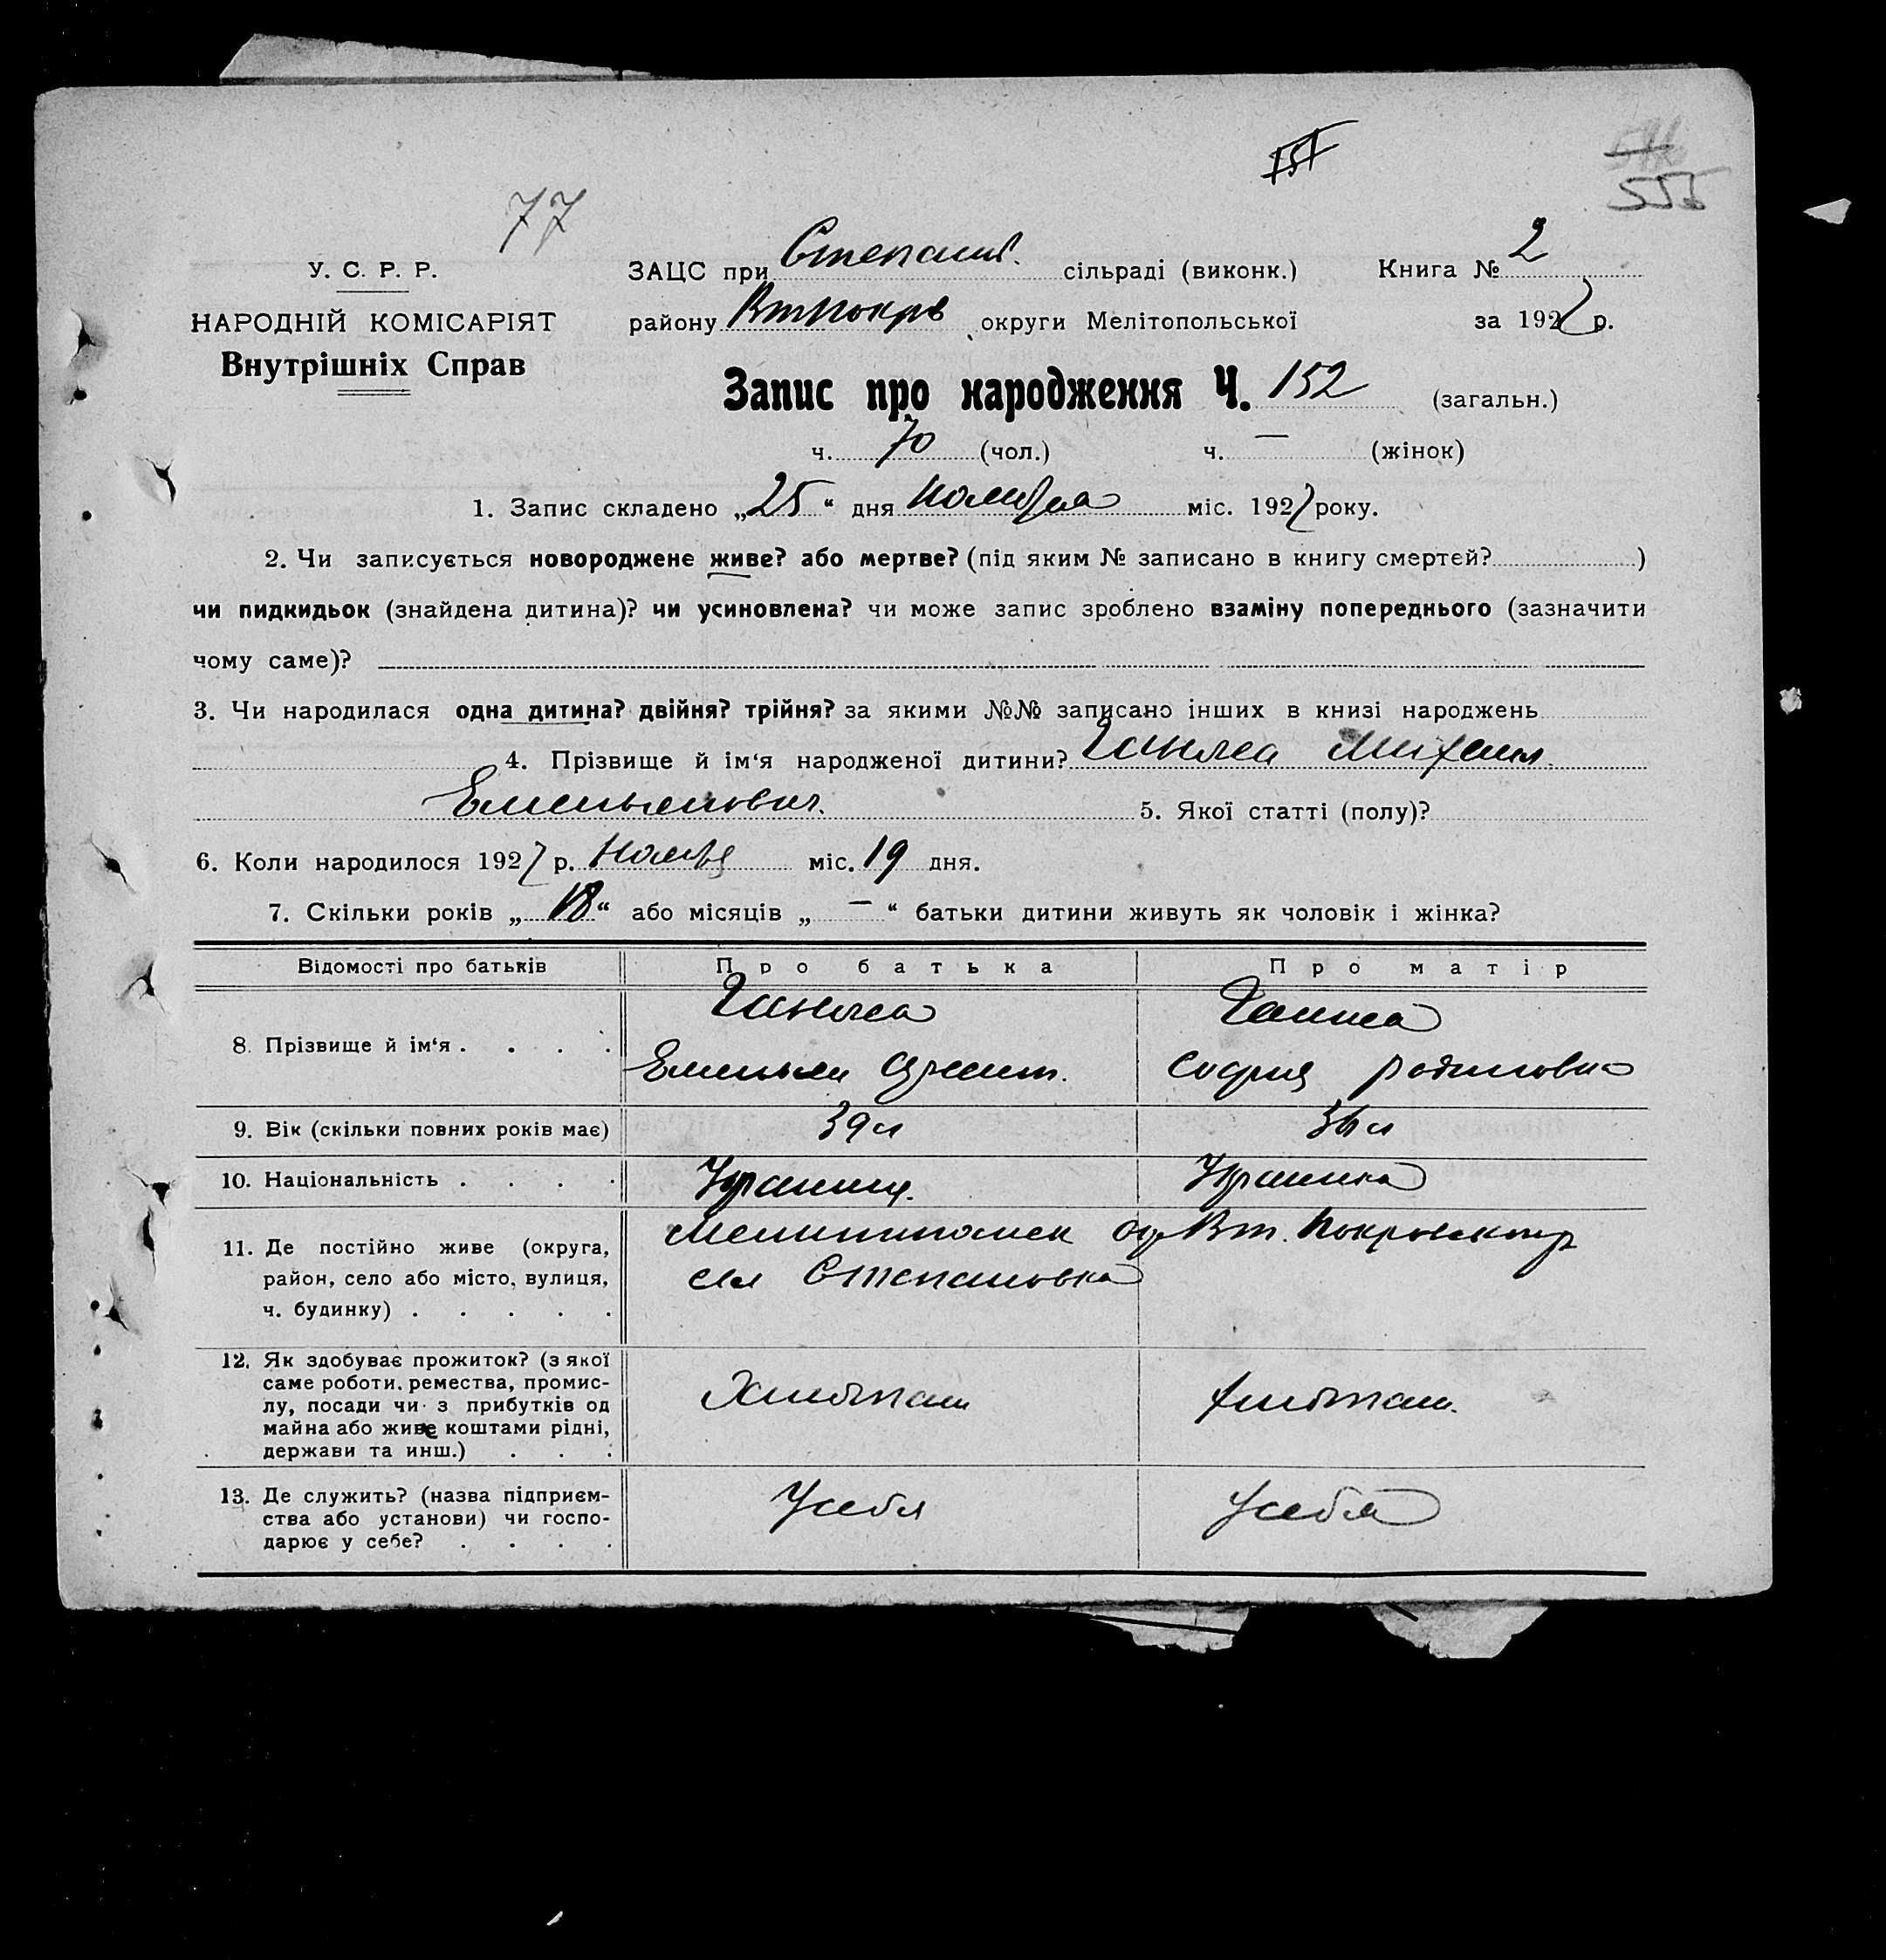 77
555
У. С. Р. Р.
НАРОДНІЙ КОМІСАРІЯТ
Внутрішніх Справ
ЗАЦС при Степанів. сільраді (виконк.) Книга № 2
району Втпокрв округи Мелітопольської за 1927 р.
Запис про народження Ч. 152 (загальн.)
ч. 70 (чол.) ч. — (жінок)
1. Запис складено „25“ дня ноября міс. 1927 року.
2. Чи записується новороджене живе? або мертве? (під яким № записано в книгу смертей? )
чи пидкидьок (знайдена дитина)? чи усиновлена? чи може запис зроблено взаміну попереднього (зазначити
чому саме)?
3. Чи народилася одна дитина? двійня? трійня? за якими №№ записано інших в книзі народжень
4. Прізвище й ім‘я народженої дитини? Михаил
Емельянович. 5. Якої статті (полу)?
6. Коли народилося 1927 р. міс. 19 дня.
7. Скільки років „18“ або місяців „—“ батьки дитини живуть як чоловік і жінка?
Відомості про батьків Про батька Про матір
8. Прізвище й ім‘я . . . .
Емельян София Родионовна
9. Вік (скільки повних років має) 39 л 36 л
10. Національність . . . . Украинец. Украинка
11. Де постійно живе (округа, район, село або місто, вулиця, ч. будинку) . . . . . Мелитополск ок Вт. Покровског р
сел Степановка
12. Як здобуває прожиток? (з якої
саме роботи, ремества, промис-
лу, посади чи з прибутків од
майна або живе коштами рідні,
держави та инш.) . . . Хлебопаш хлебопаш.
13. Де служить? (назва підприєм-
ства або установи) чи госпо-
дарює у себе? . . . . У себя У себя